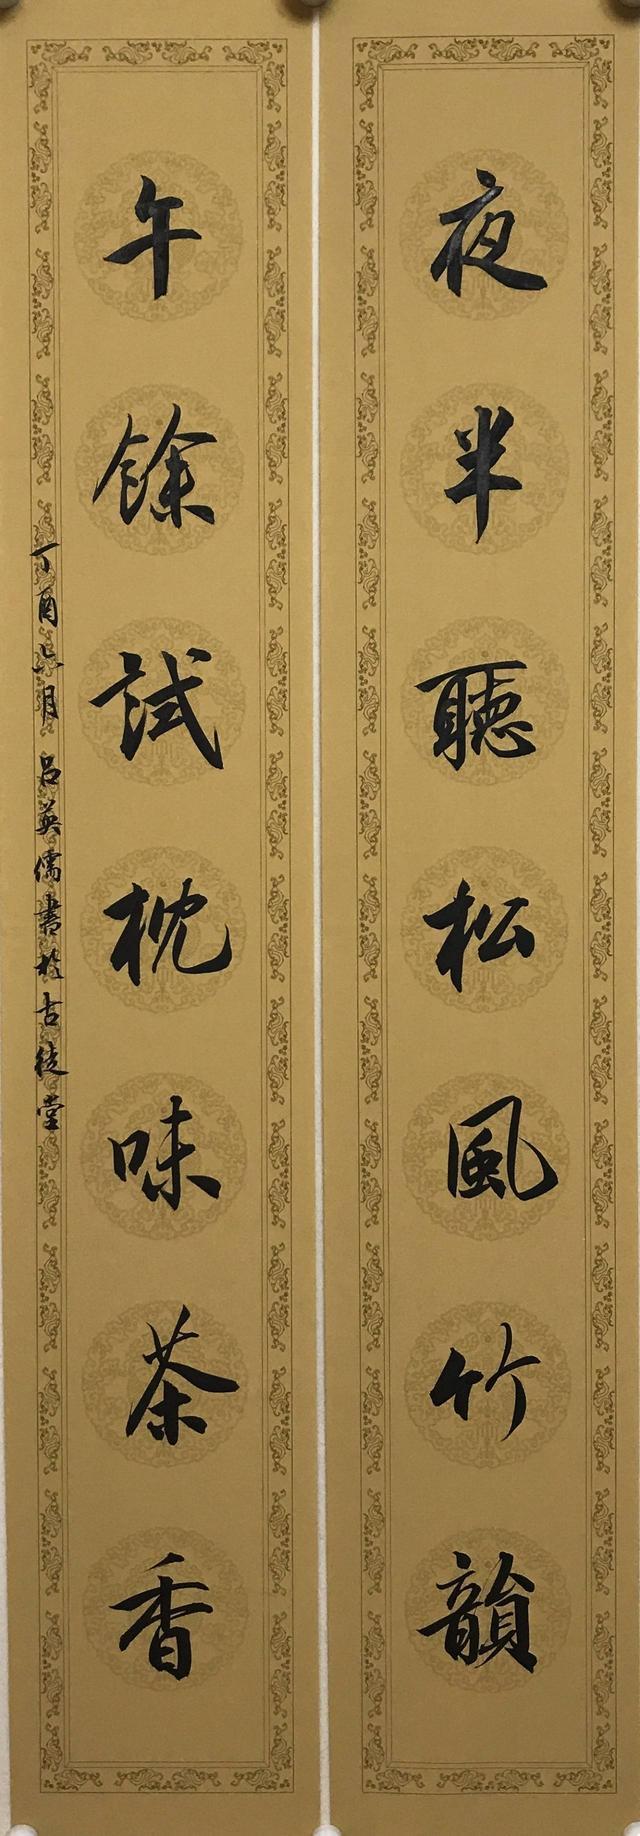 夜半聽松風竹韻
午餘試枕味茶香
丁酉六月吕英儒書於古徒堂